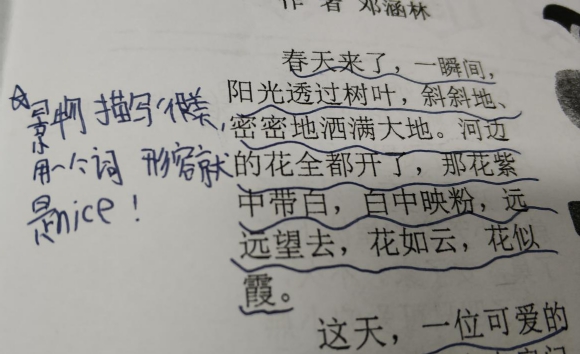 作者 邓涵林
春天来了，一瞬间，
阳光透过树叶，斜斜地、
密密地洒满大地。河边
的花全都开了，那花紫
中带白，白中映粉，远
远望去，花如云，花似
霞。
这天，一位可爱的
☆景物描写很美，
用一个词 形容就
是nice！